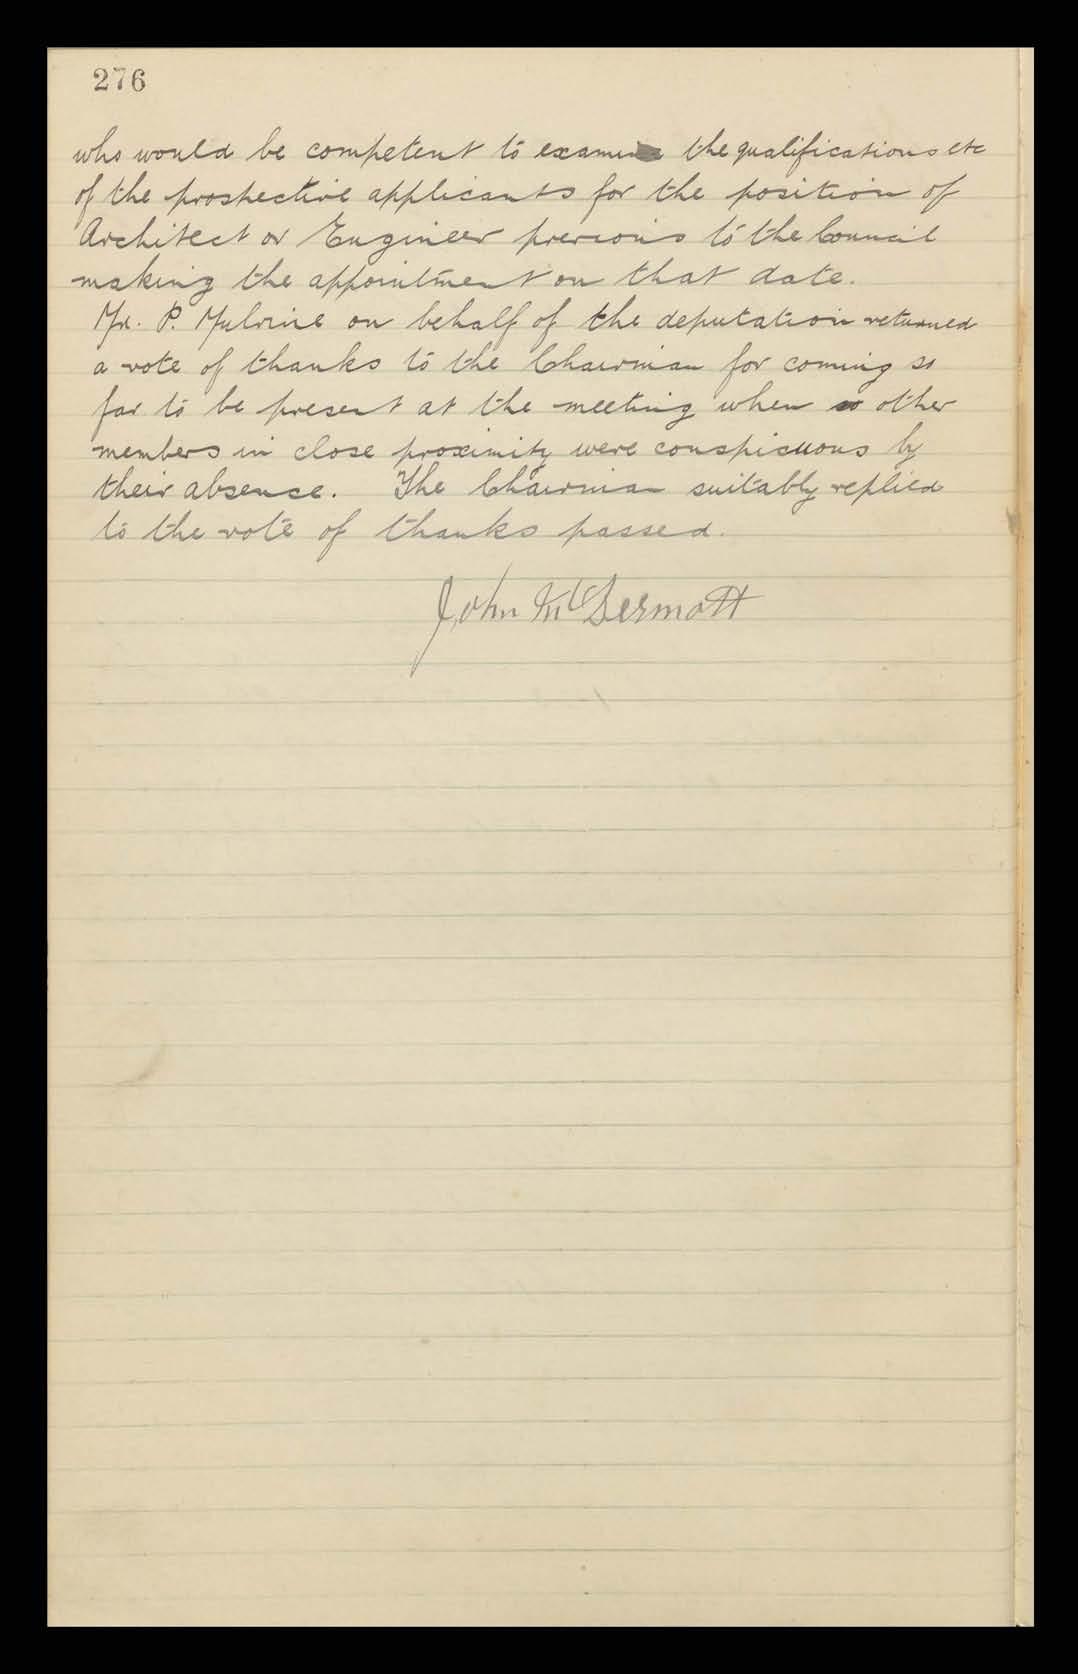 276
who would be competent to examine the qualifications etc
of the prospective applicants for the position of
Architect or Engineer previous to the Council
making the appointment on that date.
Mr. P. Mulvine on behalf of the deputation returned
a vote of thanks to the Chairman for coming so
far to be present at the meeting when so other
members in close proximity were conspicuous by
their absence. The Chairman suitably replied
to the vote of thanks passed.
John McDermott